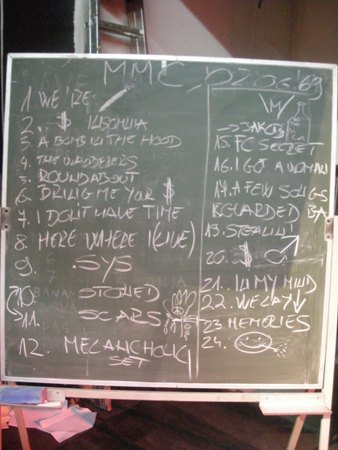 MMC, 02.06.'69
1. WE'RE
2. $ INSOMNIA
3. A BOMB IN THE HOOD
4. THE WANDERERS
5. ROUNDABOUT
6. BRING ME YOUR $
7. I DON'T HAVE TIME
8. HERE WHERE I (LIVE)
9. .SYS
10. STONED
11. SCARS
12. MELANCHOLIC
SET
→ JAKOB
15. FC SECRET
16. I GOT A WOMAN
17. A FEW SONGS
REGARDED
13. STEALIN'
20. $
21. IN MY MIND
22. WE LAY ↓
23. MEMORIES
24.